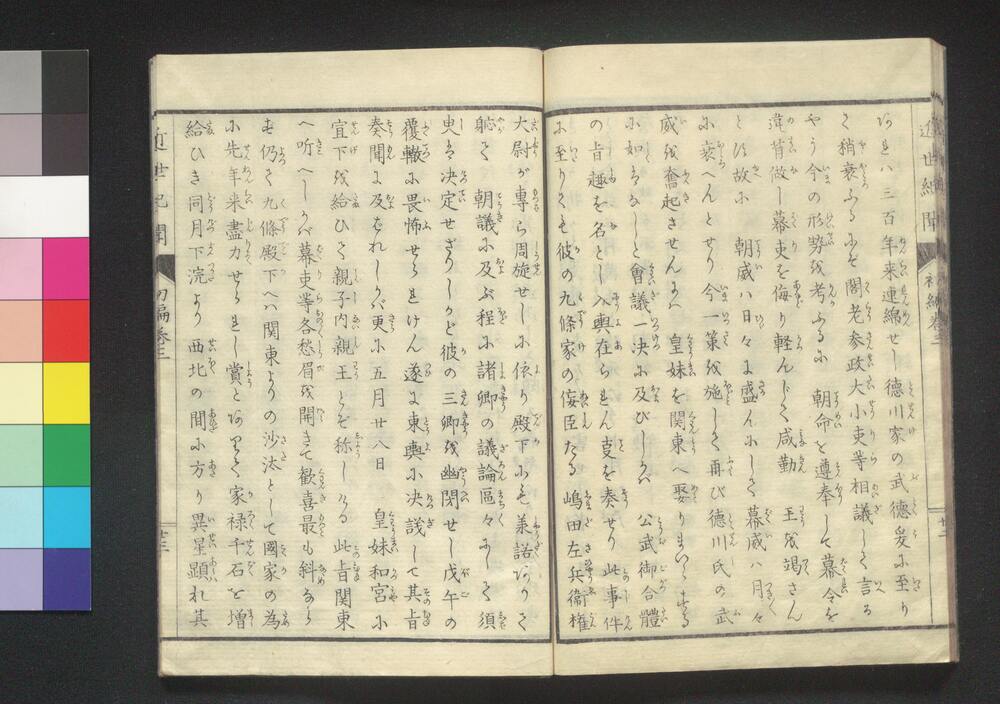 近世紀聞 初編巻三 廿二
あれハ三百年来連綿せし徳川家の武徳爰に至り
て稍衰ふるにぞ閣老参政大小吏等相議して言る
やう今の形勢を考ふるに 朝命を遵奉して幕令を
違背做し幕吏を侮り軽んじて咸勤 王を竭さん
とす故に 朝威ハ日々に盛んにして幕威ハ月々
に衰へんとせり今一策を施して再び徳川氏の武
威を奮起させんにハ 皇妹を関東へ娶りまいらする
に如はなしと會議一决に及びしかバ 公武御合體
の旨趣を名とし入輿在られん㕝を奏せり此事件
に至りても彼の九條家の侫臣たる嶋田左兵衛権
大尉が専ら周旋せしに依り殿下にも兼諾ありて
能て 朝議に及ぶ程に諸卿の議論區々にして須
臾ハ决定せざりしかど彼の三卿を幽閉せし戊午の
覆轍に畏怖せられけん遂に東輿に决議して其旨
奏聞に及ばれしかバ更に五月廿八日 皇妹和宮に
宣下を給ひて親子内親王とぞ称しける此旨関東
へ听へしかバ幕吏等各愁眉を開きて歓喜最も斜なら
ず仍て九條殿下へハ関東よりの沙汰として國家の為
に先年来盡力せられし賞とありて家禄千石を増
給ひき同月下浣より西北の間に方り異星顕れ其
近世紀聞 初編巻三 廿三